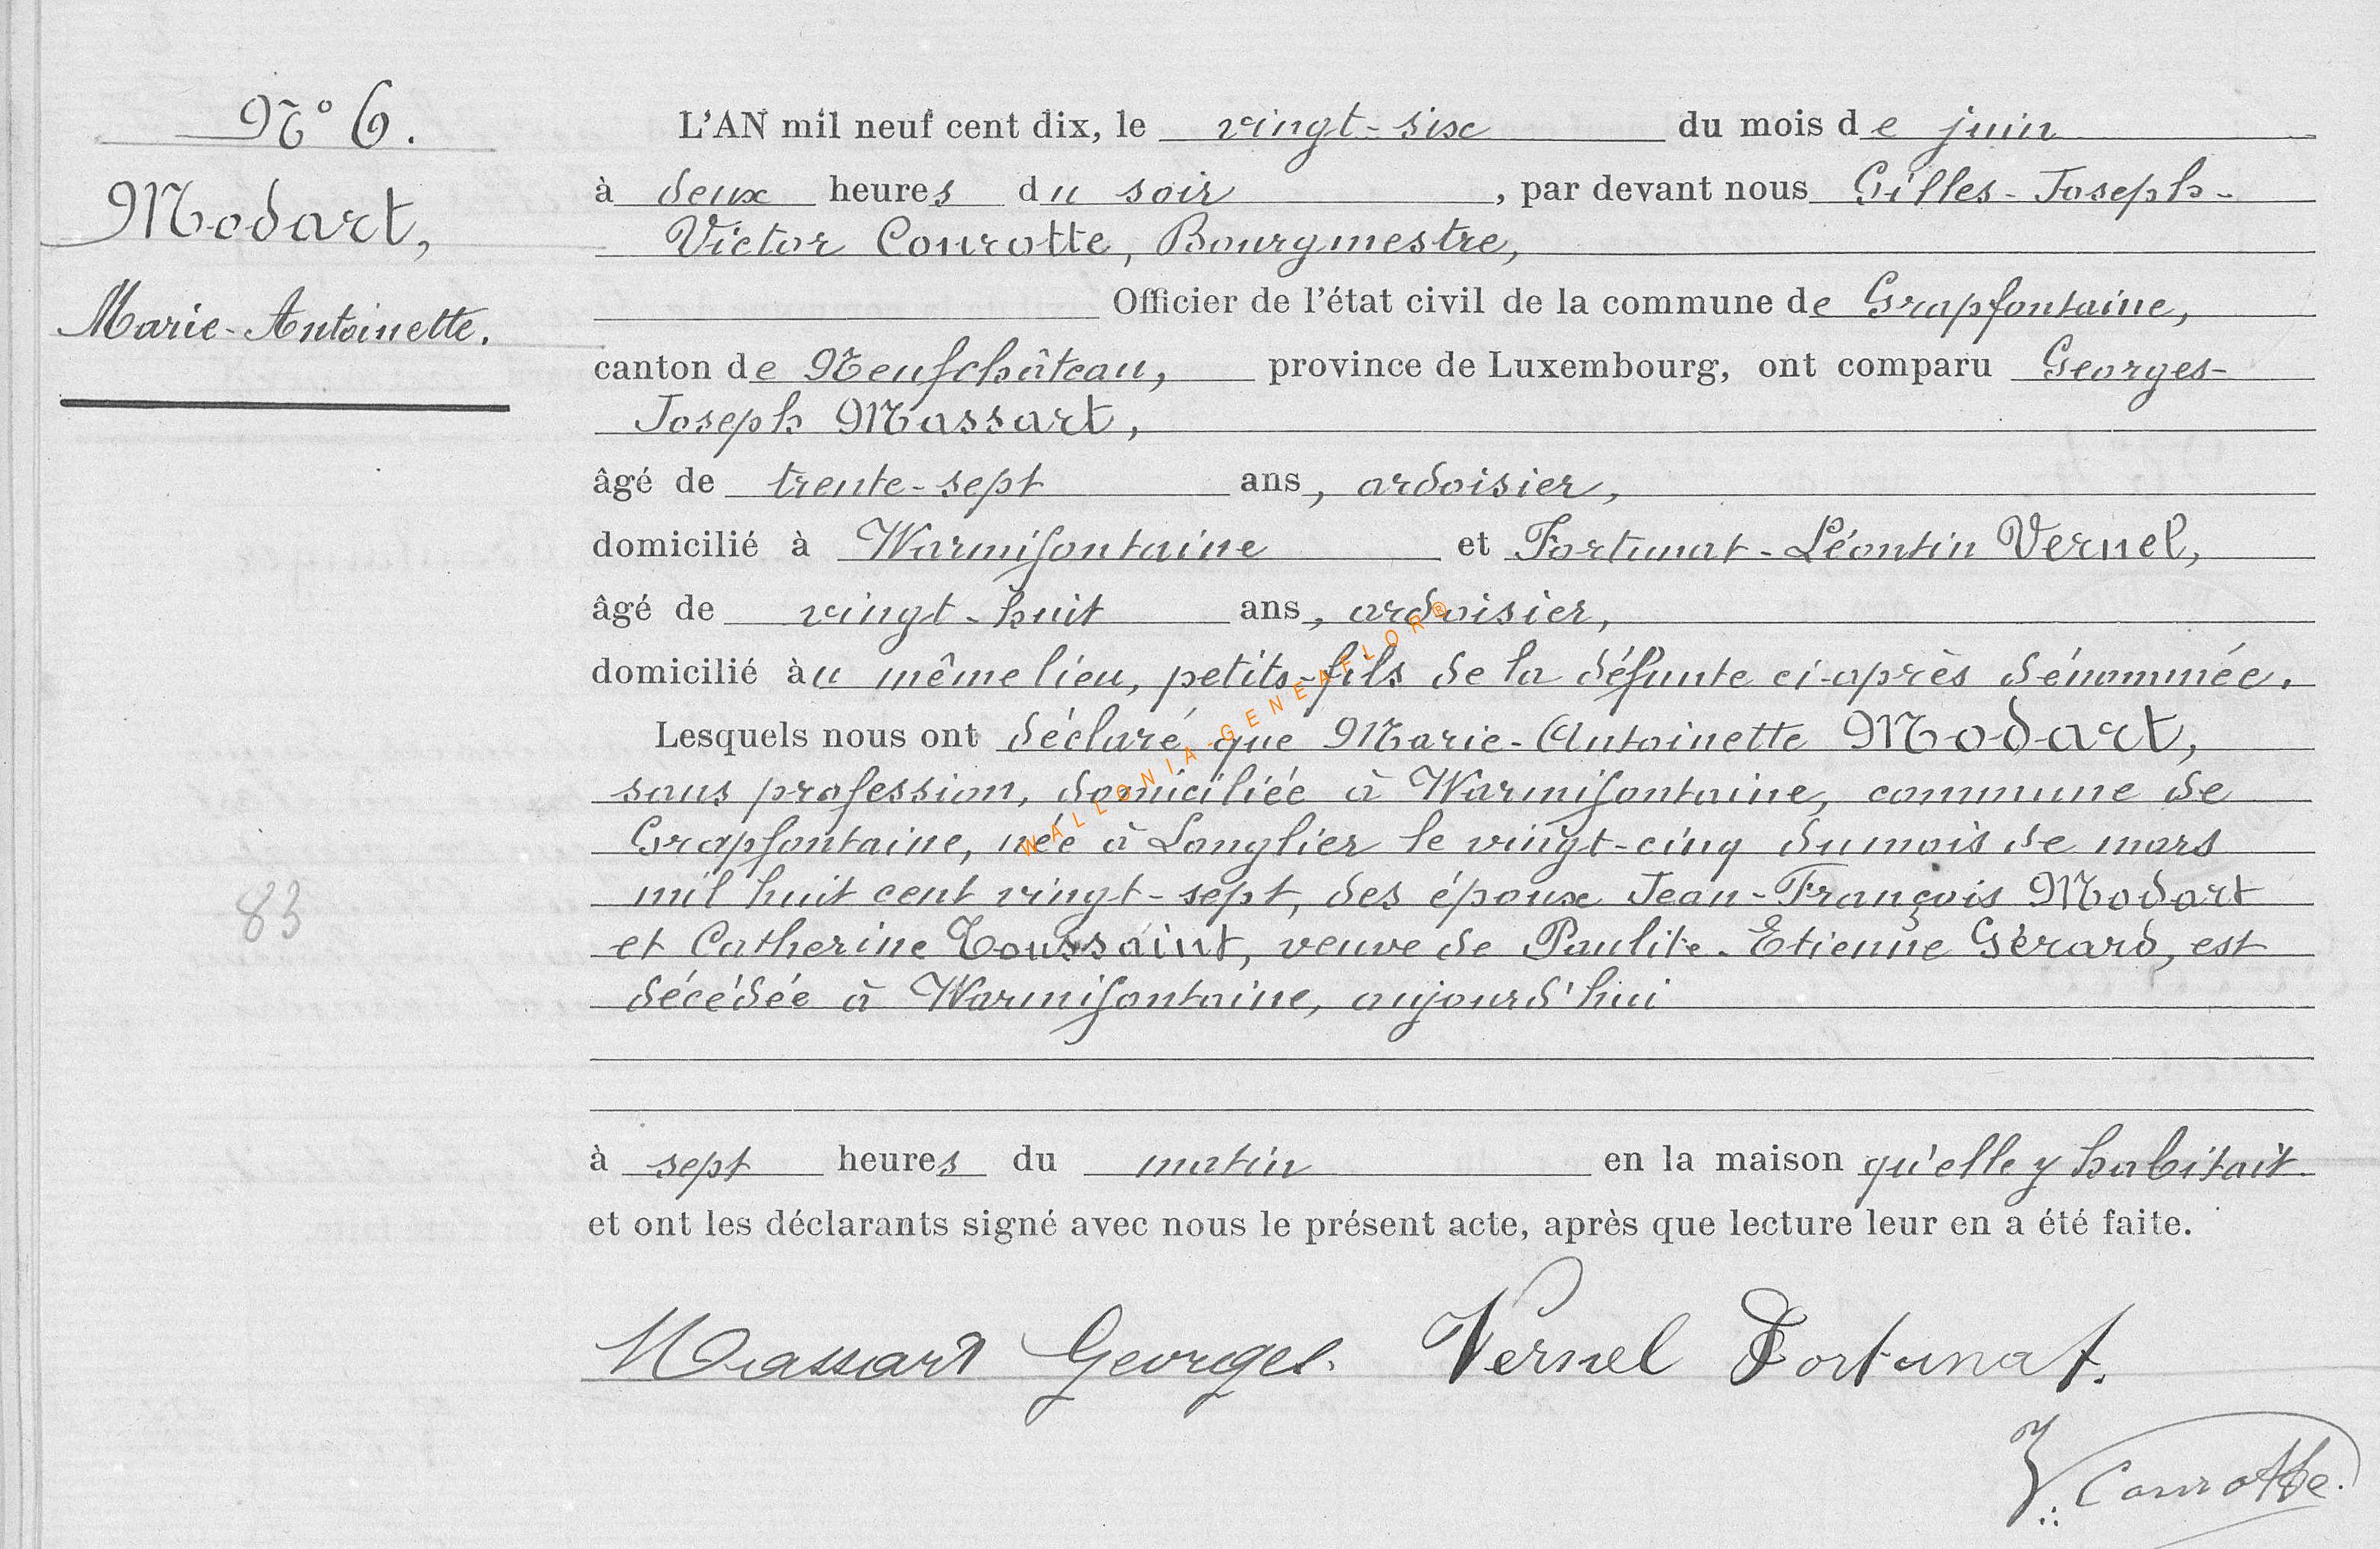 N° 6.
Modart,
Marie-Antoinette.
83
L'AN mil neuf cent dix, le vingt-six du mois de juin
à deux heures du soir, par devant nous Gilles-Joseph-
Victor Conrotte, Bourgmestre,
Officier de l'état civil de la commune de Grapfontaine,
canton de Neufchâteau, province de Luxembourg, ont comparu Georges-
Joseph Massart,
âgé de trente-sept ans, ardoisier,
domicilié à Warmifontaine et Fortunat-Léontin Vernel,
âgé de vingt-huit ans, ardoisier,
domicilié au même lieu, petits-fils de la défunte ci-après dénommée.
Lesquels nous ont déclaré que Marie-Antoinette Modart,
sans profession, domiciliée à Warmifontaine, commune de
Grapfontaine, née à Longlier le vingt-cinq du mois de mars
mil huit cent vingt-sept, des époux Jean-François Modart
et Catherine Toussaint, veuve de Paulite-Etienne Gérard, est
décédée à Warmifontaine, aujourd'hui
à sept heures du matin en la maison qu'elle y habitait
et ont les déclarants signé avec nous le présent acte, après que lecture leur en a été faite.
Massart Georges. Vernel Fortunat.
V. Conrotte.
WALLONIA-GENEAFLOR®